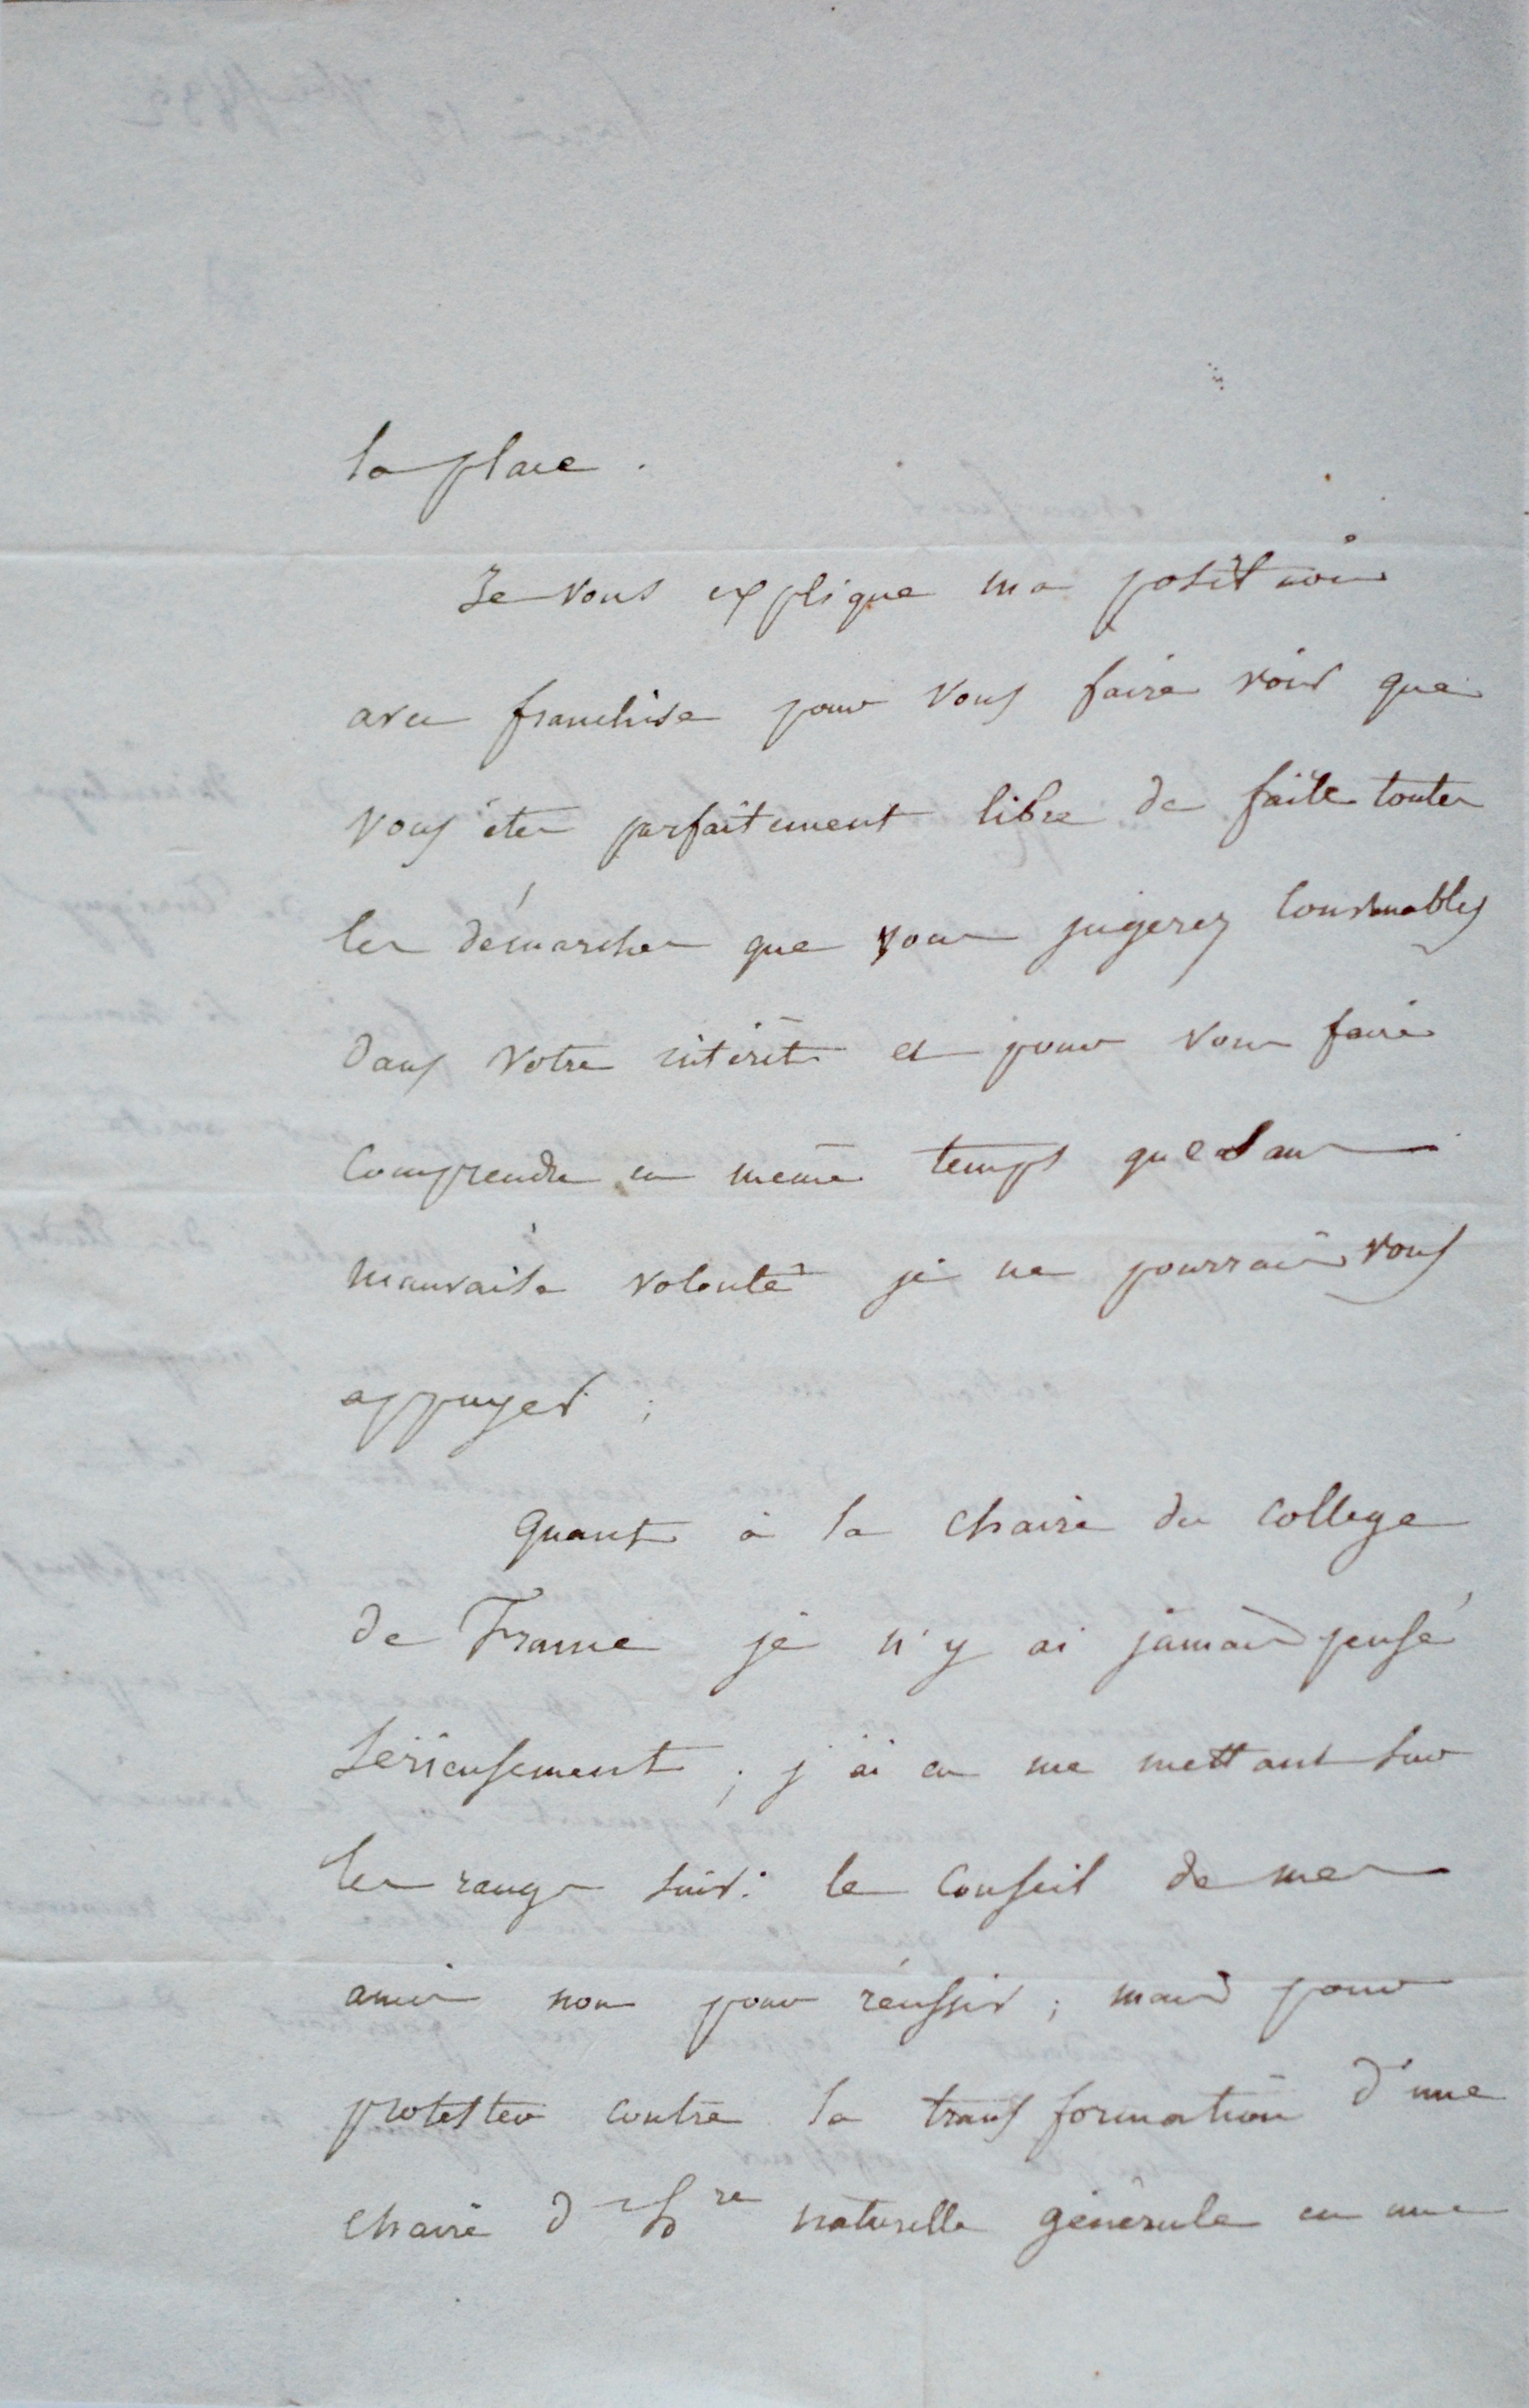 la place.
Je vous explique ma position
avec franchise pour vous faire voir que
vous êtes parfaitement libre de faire toutes
les démarches que vous jugerez convenables
dans votre intérêt et pour vous faire
comprendre en même temps que sans
mauvaise volonté je ne pourrais vous
appuyer ;
Quant à la chaire du college
de France je n'y ai jamais pensé
serieusement ; j'ai en me mettant sur
les rangs suivi le conseil de mes
amis non pour réussir ; mais pour
protester contre la transformation d'une
chaire d'h^re naturelle générale en une